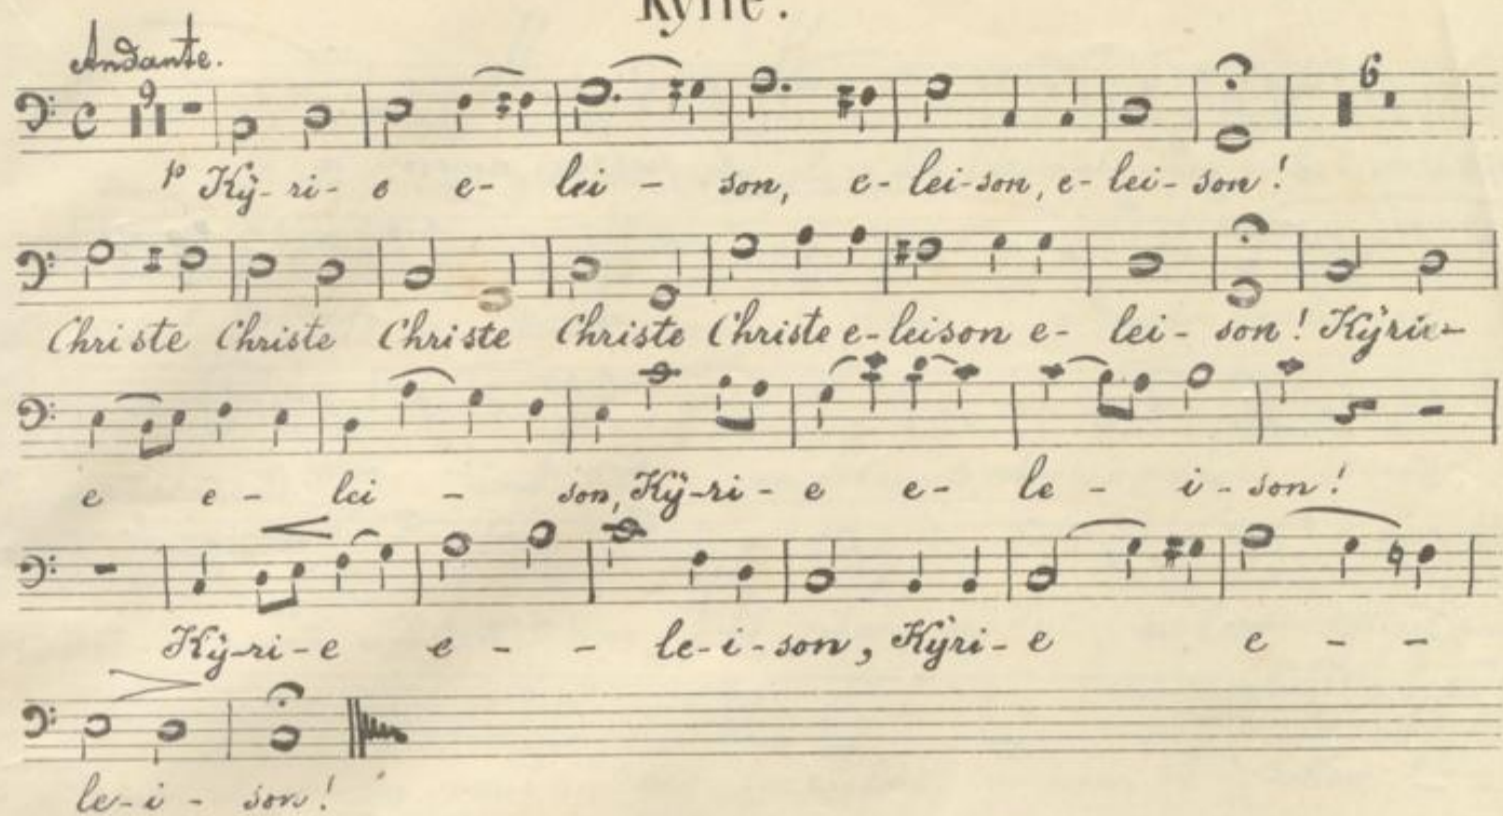 Kyrie.
Andante.
9 6
p Kÿ-ri- e e- lei - son, e-lei-son, e-lei-son!
Christe Christe Christe Christe Christe e-leison e- lei- son! Kÿrie-
e e- lei - son, Kÿ-ri- e e- le - i-son!
Kÿ-ri-e e - - le-i-son, Kÿri-e e - -
le-i - son!